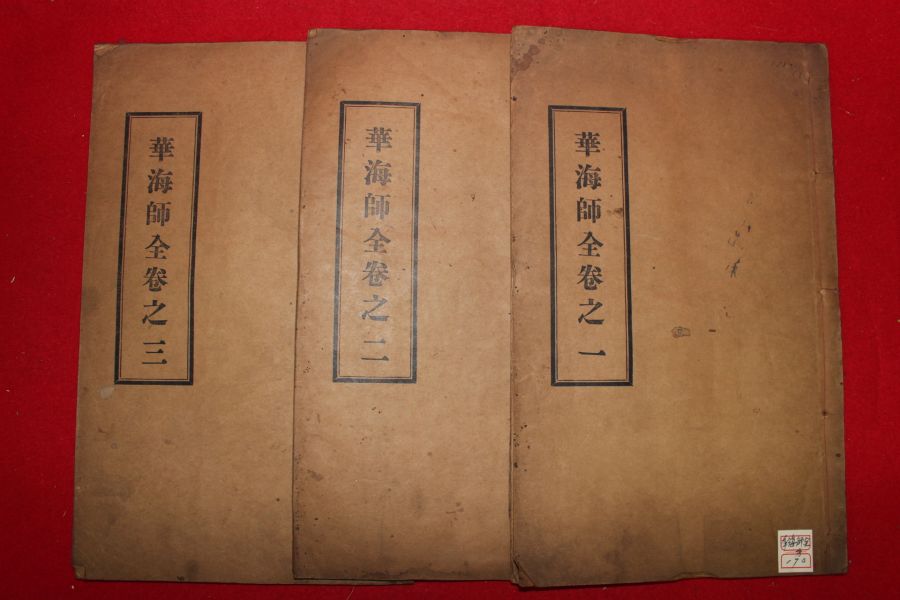 華海師全卷之一
華海師全卷之二
華海師全卷之三
華海師全
190